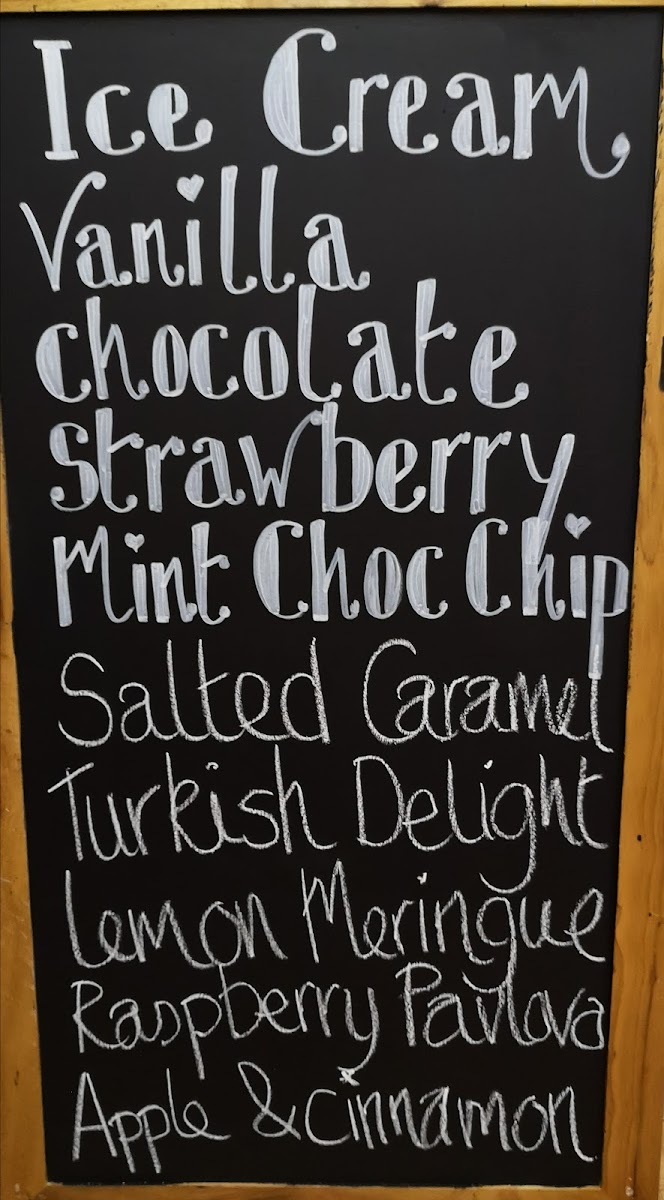 Ice Cream
Vanilla
chocolate
Strawberry
Mint Choc Chip
Salted Caramel
Turkish Delight
Lemon Meringue
Raspberry Pavlova
Apple & Cinnamon